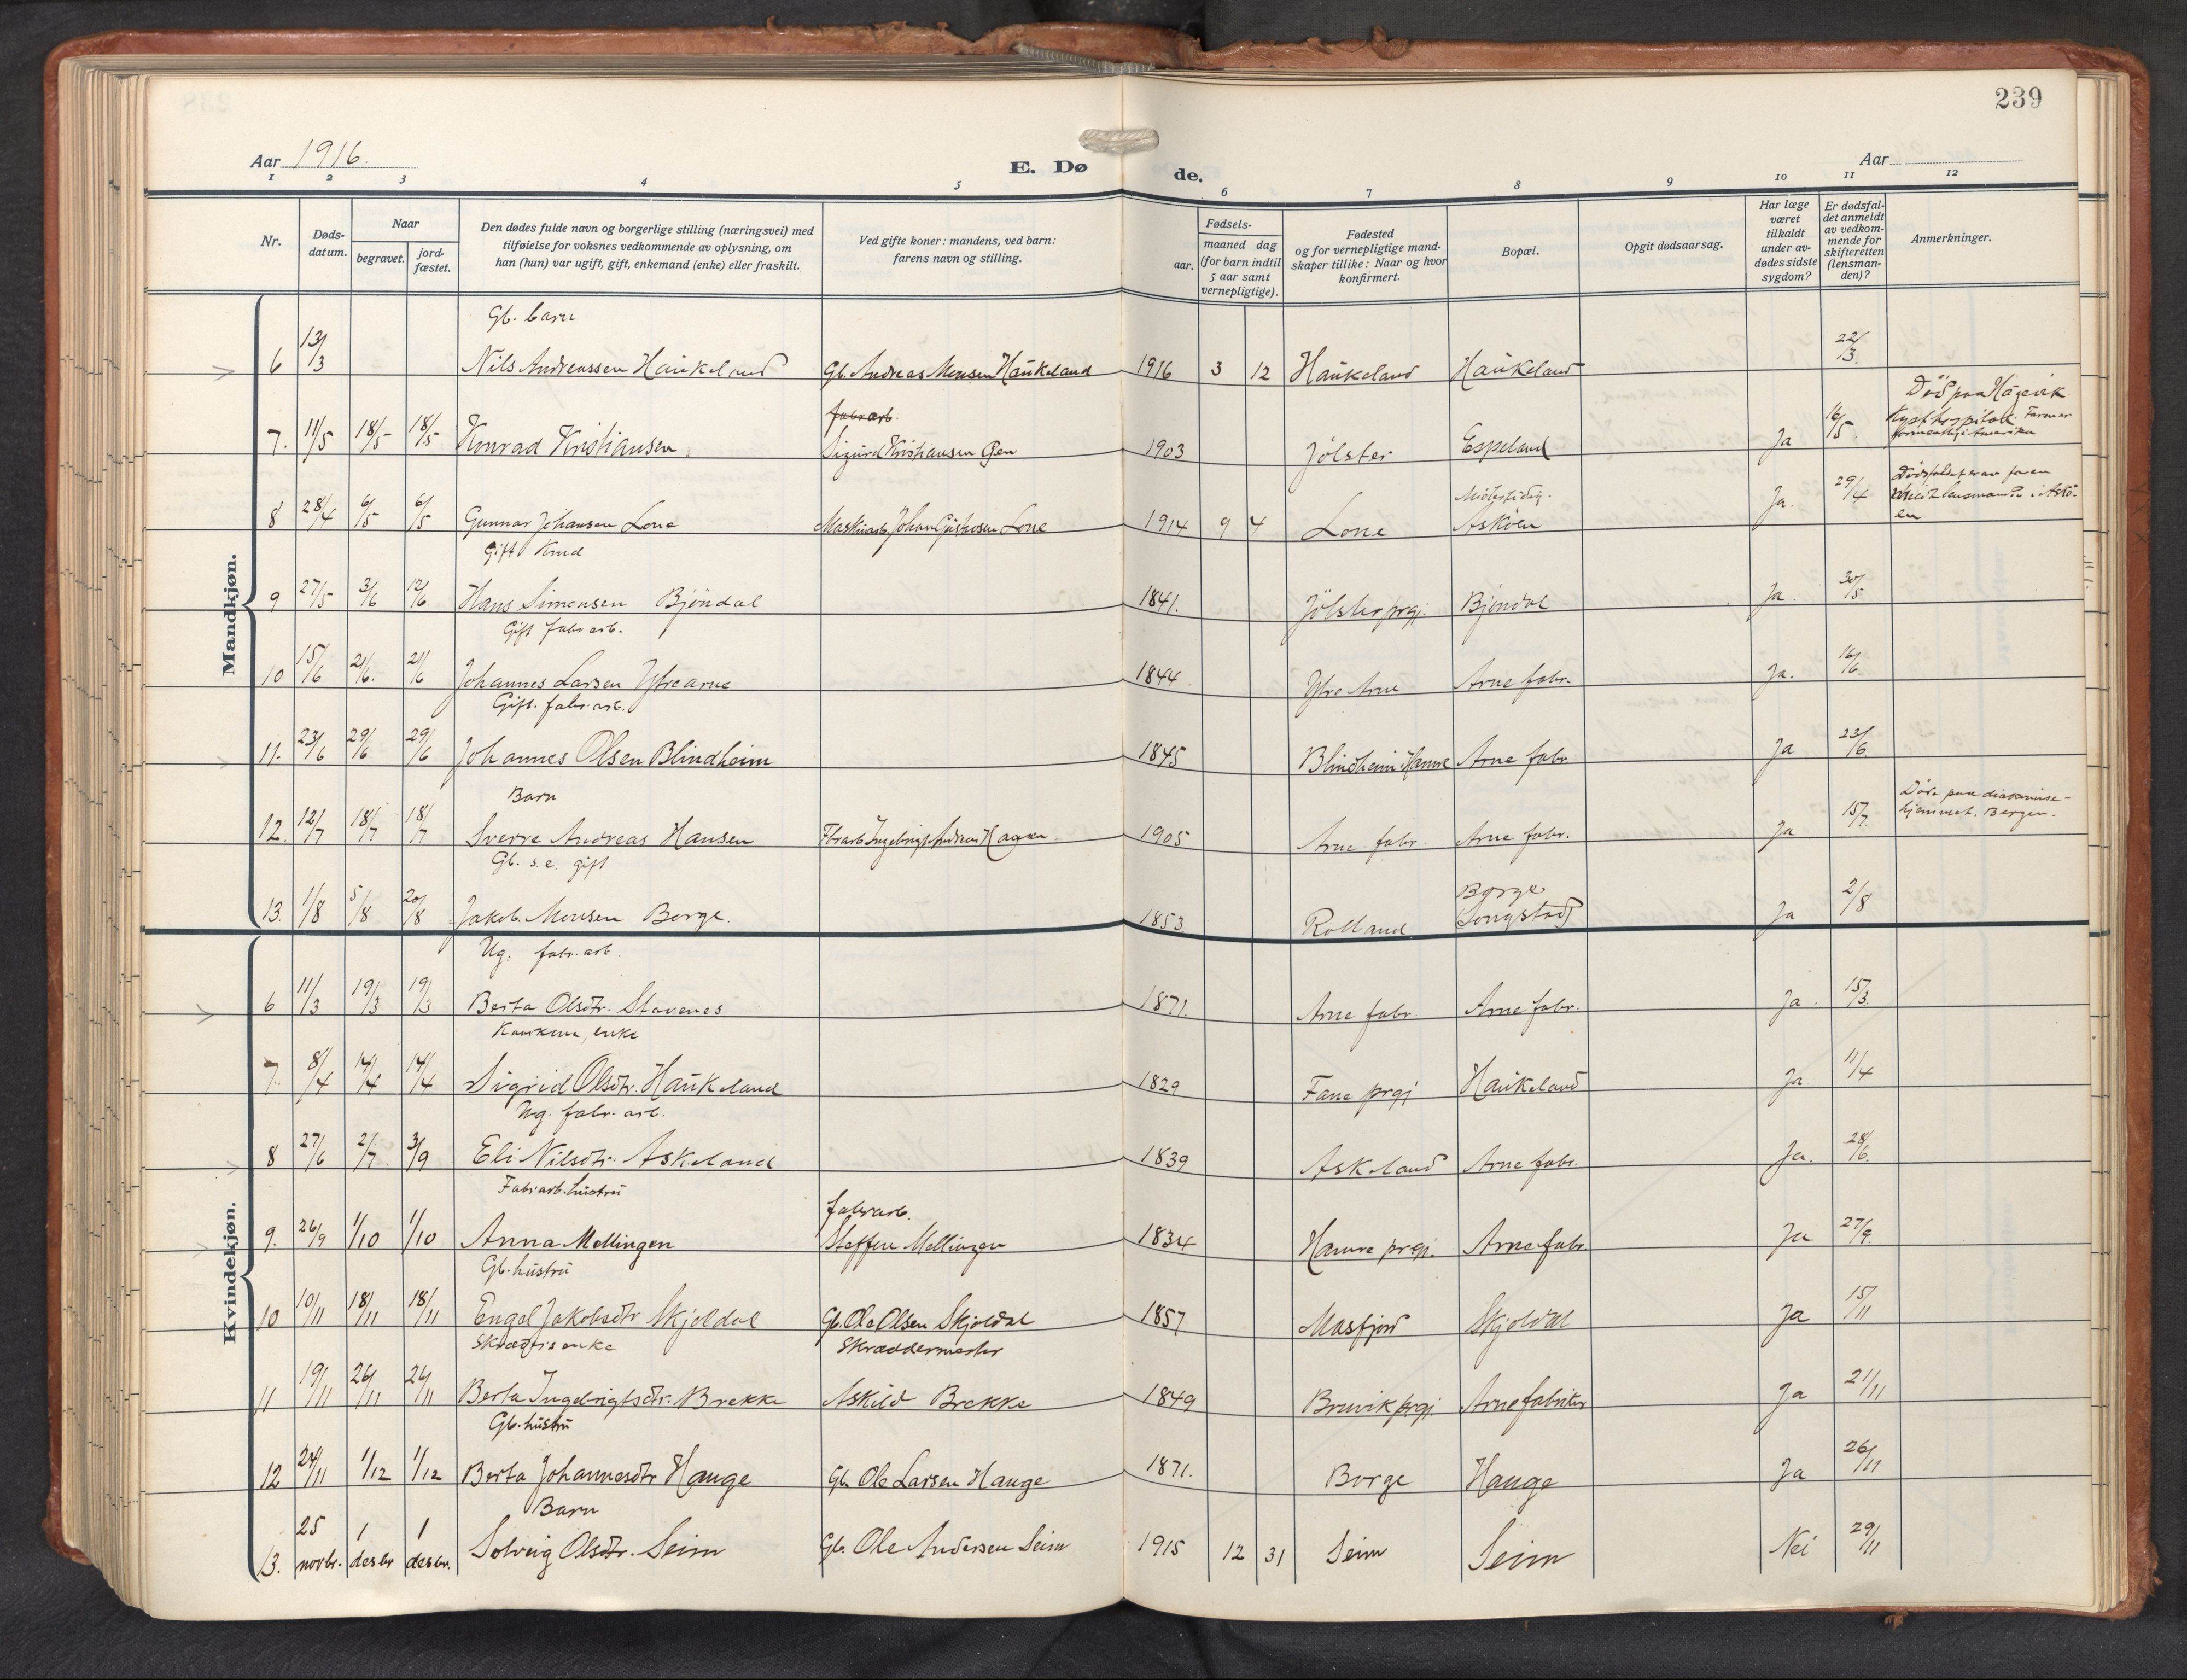 239
Aar 1916.
E. Dø de.
Aar
1 2 3 4 5 6 7 8 9 10 11 12
Nr.
Døds-
datum.
Naar
begravet.
jord-
fæstet.
Den dødes fulde navn og borgerlige stilling (næringsvei) med
tilføielse for voksnes vedkommende av oplysning, om
han (hun) var ugift, gift, enkemand (enke) eller fraskilt.
Ved gifte koner: mandens, ved barn:
farens navn og stilling.
Fødsels-
aar.
maaned dag
(for barn indtil
5 aar samt
vernepligtige).
Fødested
og for vernepligtige mand-
skaper tillike: Naar og hvor
konfirmert.
Bopæl.
Opgit dødsaarsag.
Har læge
været
tilkaldt
under av-
dødes sidste
sygdom?
Er dødsfal-
det anmeldt
av vedkom-
mende for
skifteretten
(lensman-
den)?
Anmerkninger.
Mandkjøn.
Gb. barn
6 13/3 Nils Andreassen Haukeland Gb. Andreas Monsen Haukeland 1916 3 12 Haukeland Haukeland 22/3.
fabrarb.
Død paa Hagevik
7. 11/5 18/5 18/5 Konrad Kristiansen Sigurd Kristiansen Gen 1903 Jølster Espeland Ja 16/5. Kysthospital. Faren er
i Amerika
8 28/4 6/5 6/5 Gunnar Johansen Lone Maskinarb. Johan Gustavsen Lone 1914 9 4 Lone Midlertidig. Askøen Ja. 29/4 Dødsfaldet er av faren
meldt lensmand i Askø-
en
Gift Kmd
9 27/5 3/6 12/6 Hans Simensen Bjøndal 1841. Jølster prgj. Bjøndal Ja. 30/5
Gift fabr arb.
10 15/6 21/6. 21/6 Johannes Larsen Ytrearne 1844. Ytre Arne Arne fabr. Ja. 16/6
Gift. fabr. arb.
11. 23/6 29/6 29/6 Johannes Olsen Blindheim 1845 Blindheim Hamre Arne fabr. Ja 23/6
Barn
Døde paa diakonisse-
12. 12/7 18/7 18/7 Sverre Andreas Hansen Fbrarb Ingebrigt Andreas Hansen. 1905 Arne fabr. Arne fabr. Ja 15/7. hjemmet. Bergen.
Gb. s. e. gift
Borge
13. 1/8 5/8 20/8 Jakob Monsen Borge. 1853. Rolland (Longstad) Ja 2/8
Kvindekjøn.
Ug. fabr. arb.
6 11/3 19/3 19/3 Berta Olsdtr. Stavenes 1871. Arne fabr. Arne fabr. Ja. 15/3.
enke
7. 8/4 14/4 14/4 Sigrid Olsdtr. Haukeland 1829 Fane prgj Haukeland Ja 11/4
Ug. fabr. arb.
8 27/6 2/7 3/9 Eli Nilsdtr. Askeland 1839 Askeland Arne fabr. Ja. 28/6.
Fabrarb. hustru
fabrarb.
9. 26/9 1/10 1/10 Anna Mellingen Steffen Mellingen 1834 Hamre prgj. Arne fabr. Ja 27/9.
Gb. hustru
10 10/11 18/11 18/11 Engel Jakobsdtr Skjoldal Gb. Ole Olsen Skjoldal 1857 Masfjord Skjoldal Ja 15/11
Skræders enke
Skræddermester
11 19/11 26/11 26/11 Berta Ingebrigtsdtr. Brekke Askild Brekke 1849 Bruvik prgj. Arne fabriker Ja 21/11
Gb. hustru
12 24/11 1/12 1/12 Berta Johannesdtr Hauge Gb. Ole Larsen Hauge 1871. Borge Hauge Ja 26/11
Barn
13. 25 novbr. 1 desbr 1 desbr. Solveig Olsdtr. Seim Gb. Ole Andersen Seim 1915 12 31 Seim Seim Nei 29/11